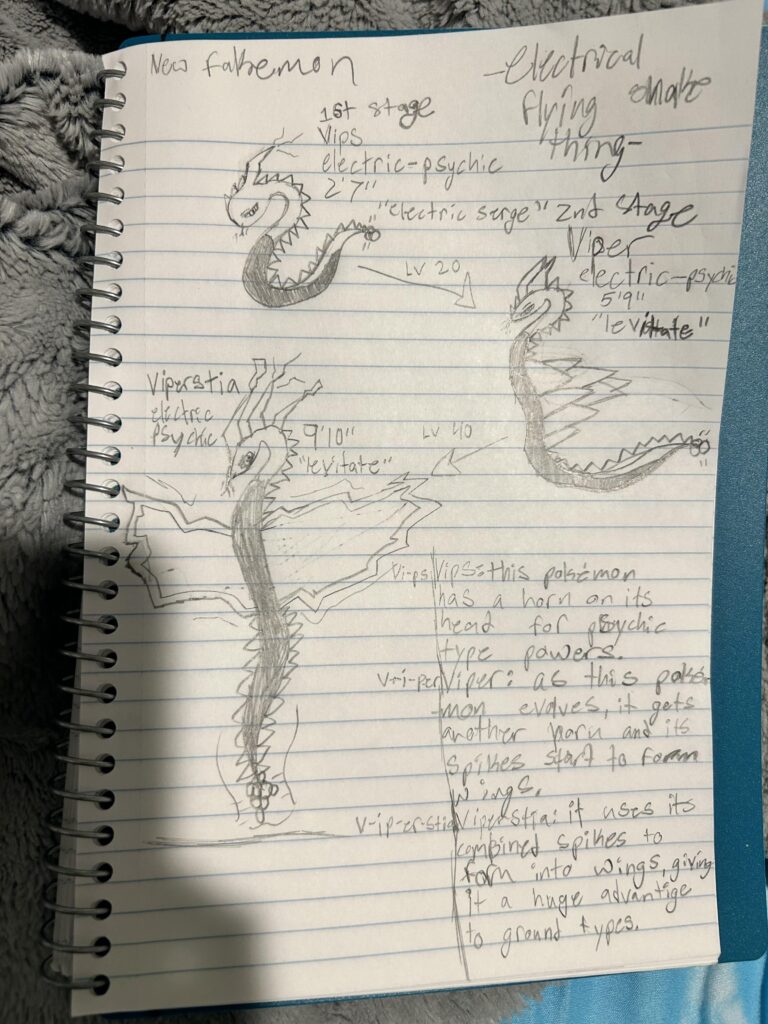 New fakemon
-electrical
flying snake
thing-
1st stage
Vips
electric-psychic
2'7"
"electric serge"
LV 20
2nd stage
Viper
electric-psychic
5'9"
"levitate"
LV 40
Viperstia
electric
psychic
9'10"
"levitate"
Vi-ps Vips: this pokémon
has a horn on its
head for psychic
type powers.
V-i-per Viper: as this poké
-mon evolves, it gets
another horn and its
spikes start to form
wings.
V-ip-er-stia Viperstia: it uses its
combined spikes to
form into wings, giving
it a huge advantige
to ground types.